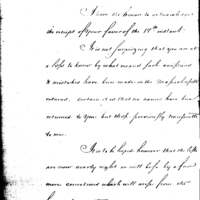 I have the honor to acknowledge
the receipt of your favor of the 18th instant.
It is not surprizing that you are at
a loss to know by what means such omissions
& mistakes have been made in the Massachusetts
returns, certain it is that no names have been
returned to you but those previously transmitted
to me.
It is to be hoped however that the lists
are now nearly right or will be so by a few
more corrections which will arise from the